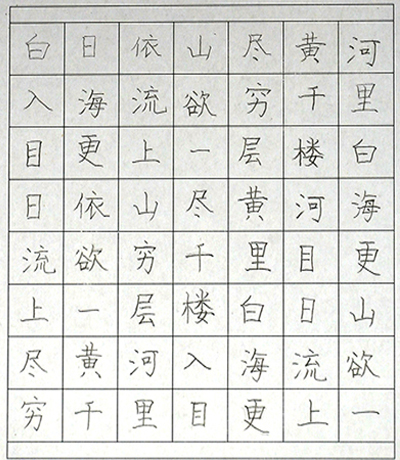 白日依山尽黄河
入海流欲穷千里
目更上一层楼白
日依山尽黄河海
流欲穷千里目更
上一层楼白日山
尽黄河入海流欲
穷千里目更上一